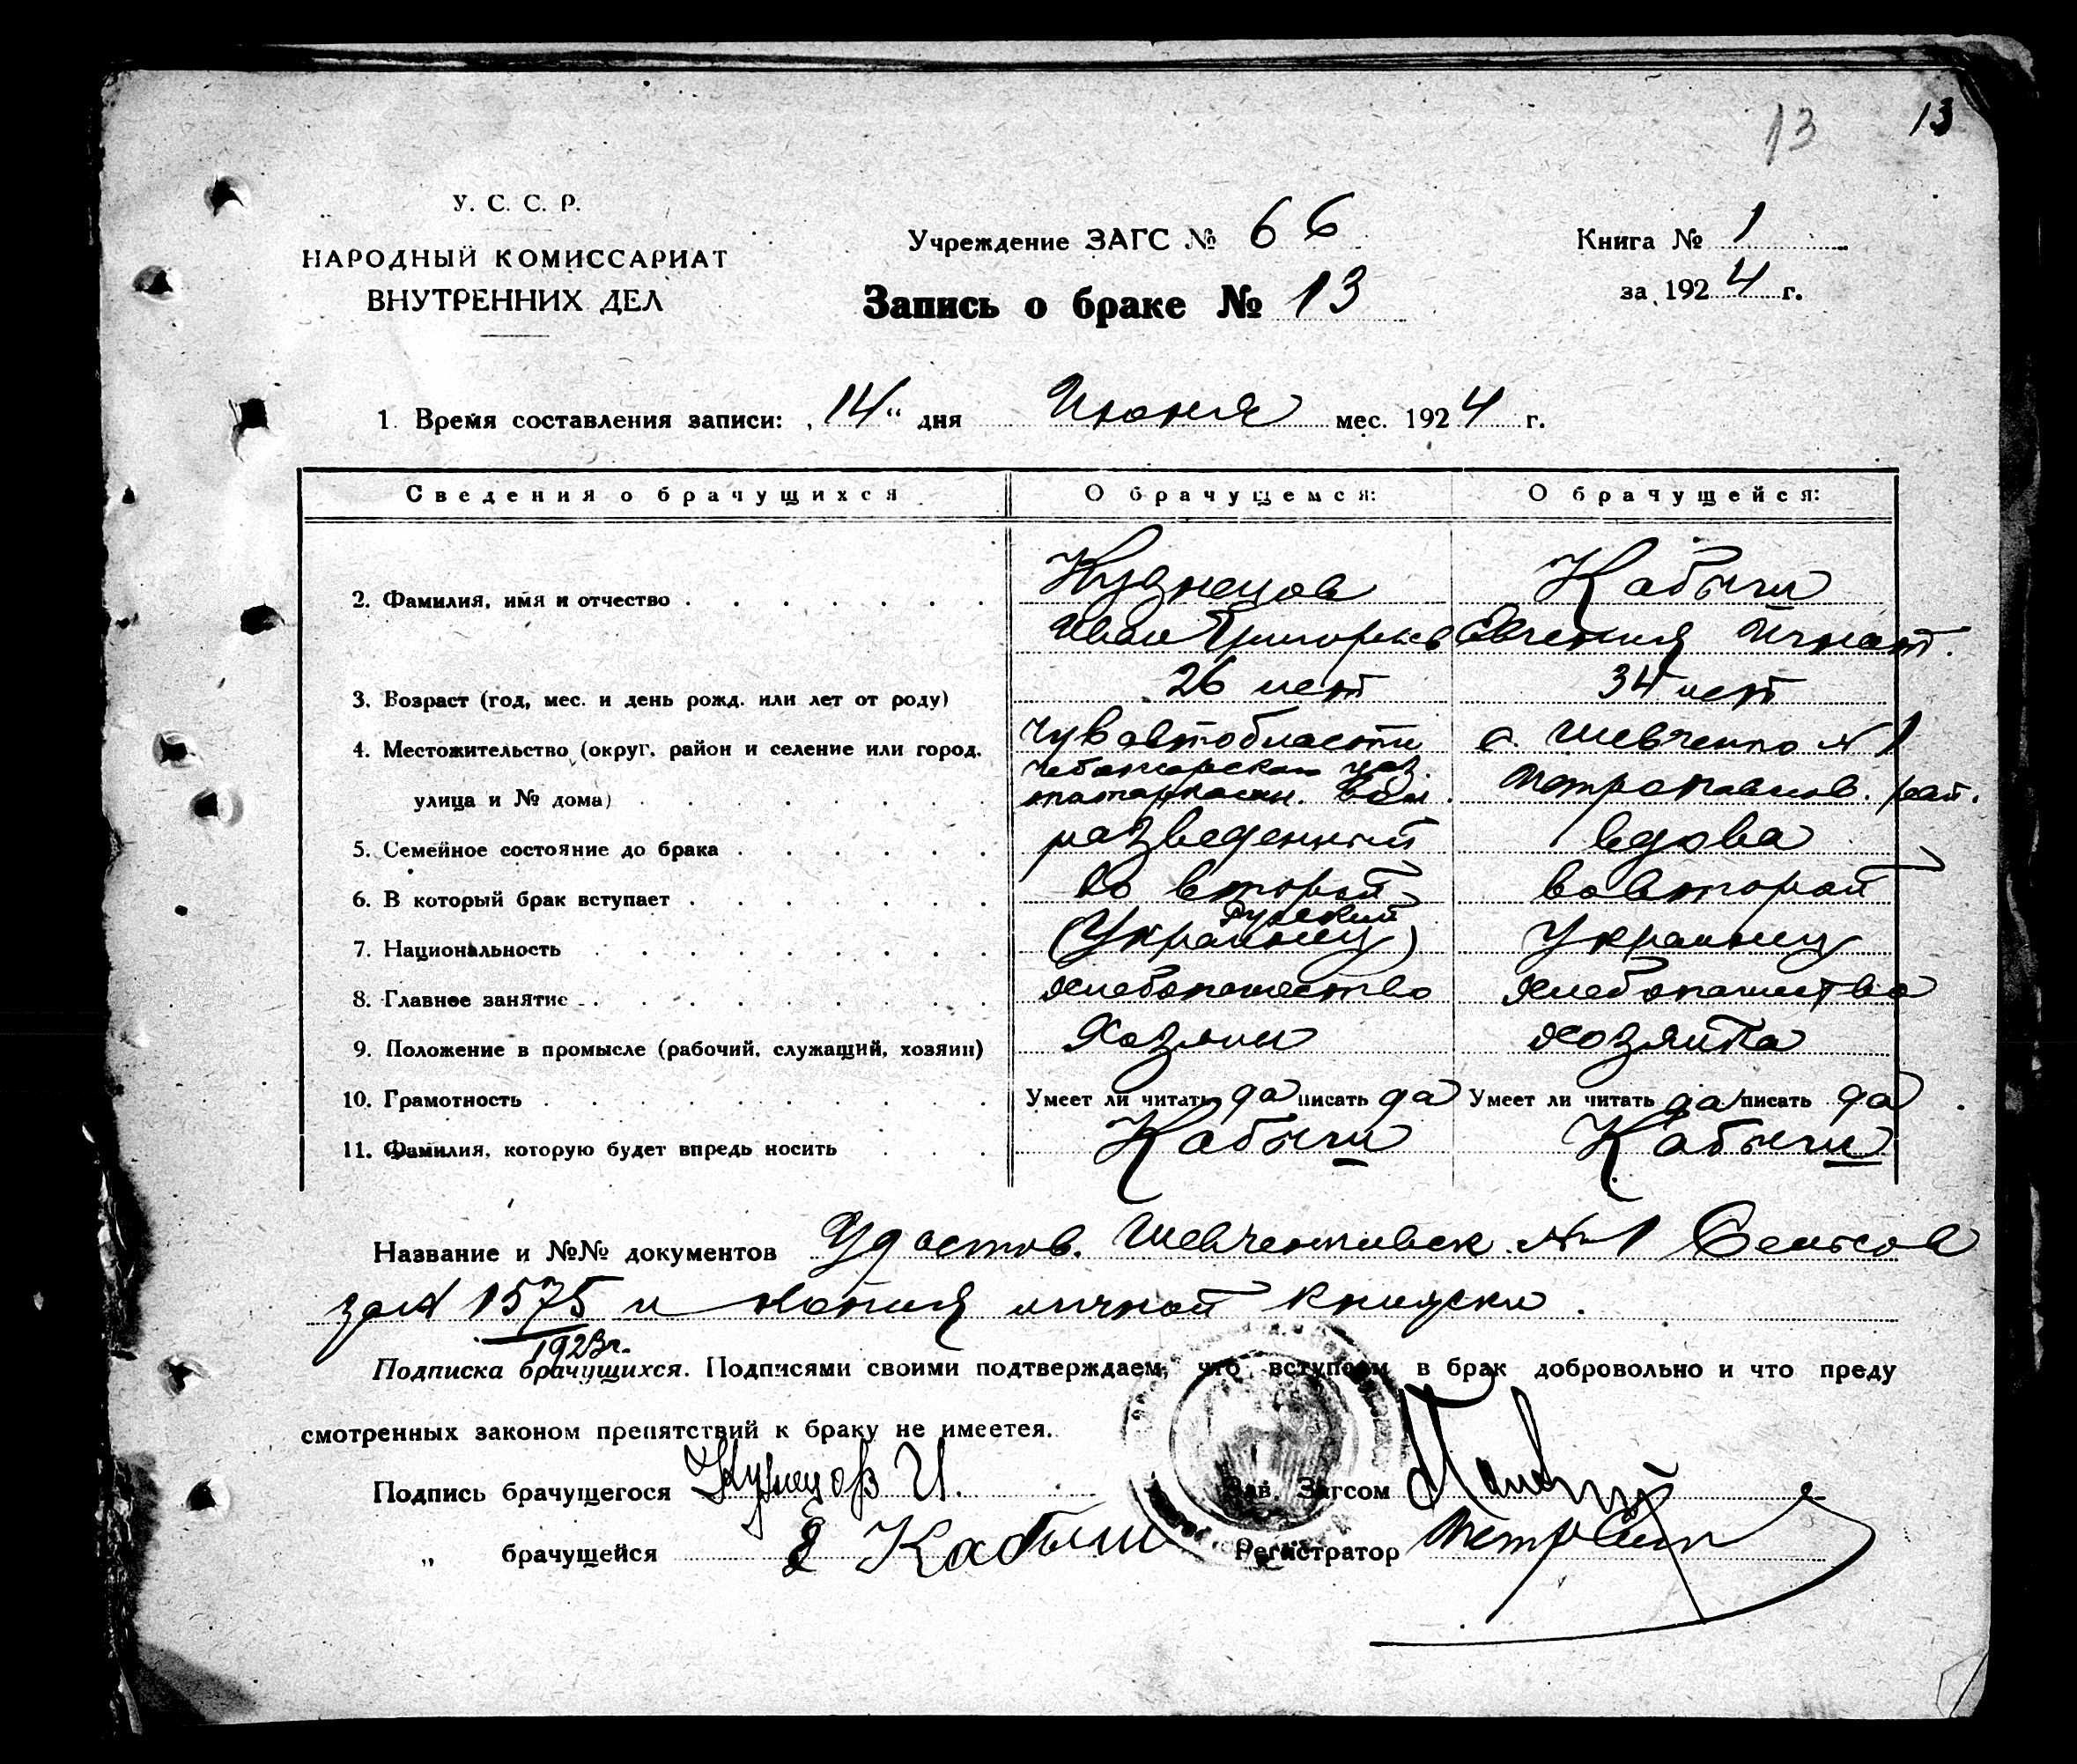 13 13
У. С. С. Р.
НАРОДНЫЙ КОМИССАРИАТ
ВНУТРЕННИХ ДЕЛ
Учреждение ЗАГС № 66
Книга № 1
Запись о браке № 13
за 1924 г.
1. Время составления записи: "14" дня Июня мес. 1924 г.
Сведения о брачущихся О брачущемся: О брачущейся:
2. Фамилия, имя и отчество Кузнецов Кабыш
Иван Григорьев Евгения Игнат.
3. Возраст (год, мес. и день рожд. или лет от роду) 26 лет 34 лет
4. Местожительство (округ, район и селение или город, Чувавтобласти с. Шевченко № 1
улица и № дома) Чебоксарского уез. вол. Петропавлов. рай.
5. Семейное состояние до брака разведенный вдова
6. В который брак вступает во второй во второй
7. Национальность (Украинец) Русский Украинец
8. Главное занятие хлебопашество хлебопашество
9. Положение в промысле (рабочий, служащий, хозяин) Хозяин хозяйка
10. Грамотность Умеет ли читать да писать да Умеет ли читать да писать да
11. Фамилия, которую будет впредь носить Кабыш Кабыш
Название и №№ документов Удостов. Шевченковск № 1 Сельсов
за № 1575 и копия личной книжки.
1923 г.
Подписка брачущихся. Подписями своими подтверждаем, что вступаем в брак добровольно и что преду
смотренных законом препятствий к браку не имеется.
Подпись брачущегося Кузнецов И. Зав. Загсом
„ брачущейся Е Кабыш Регистратор